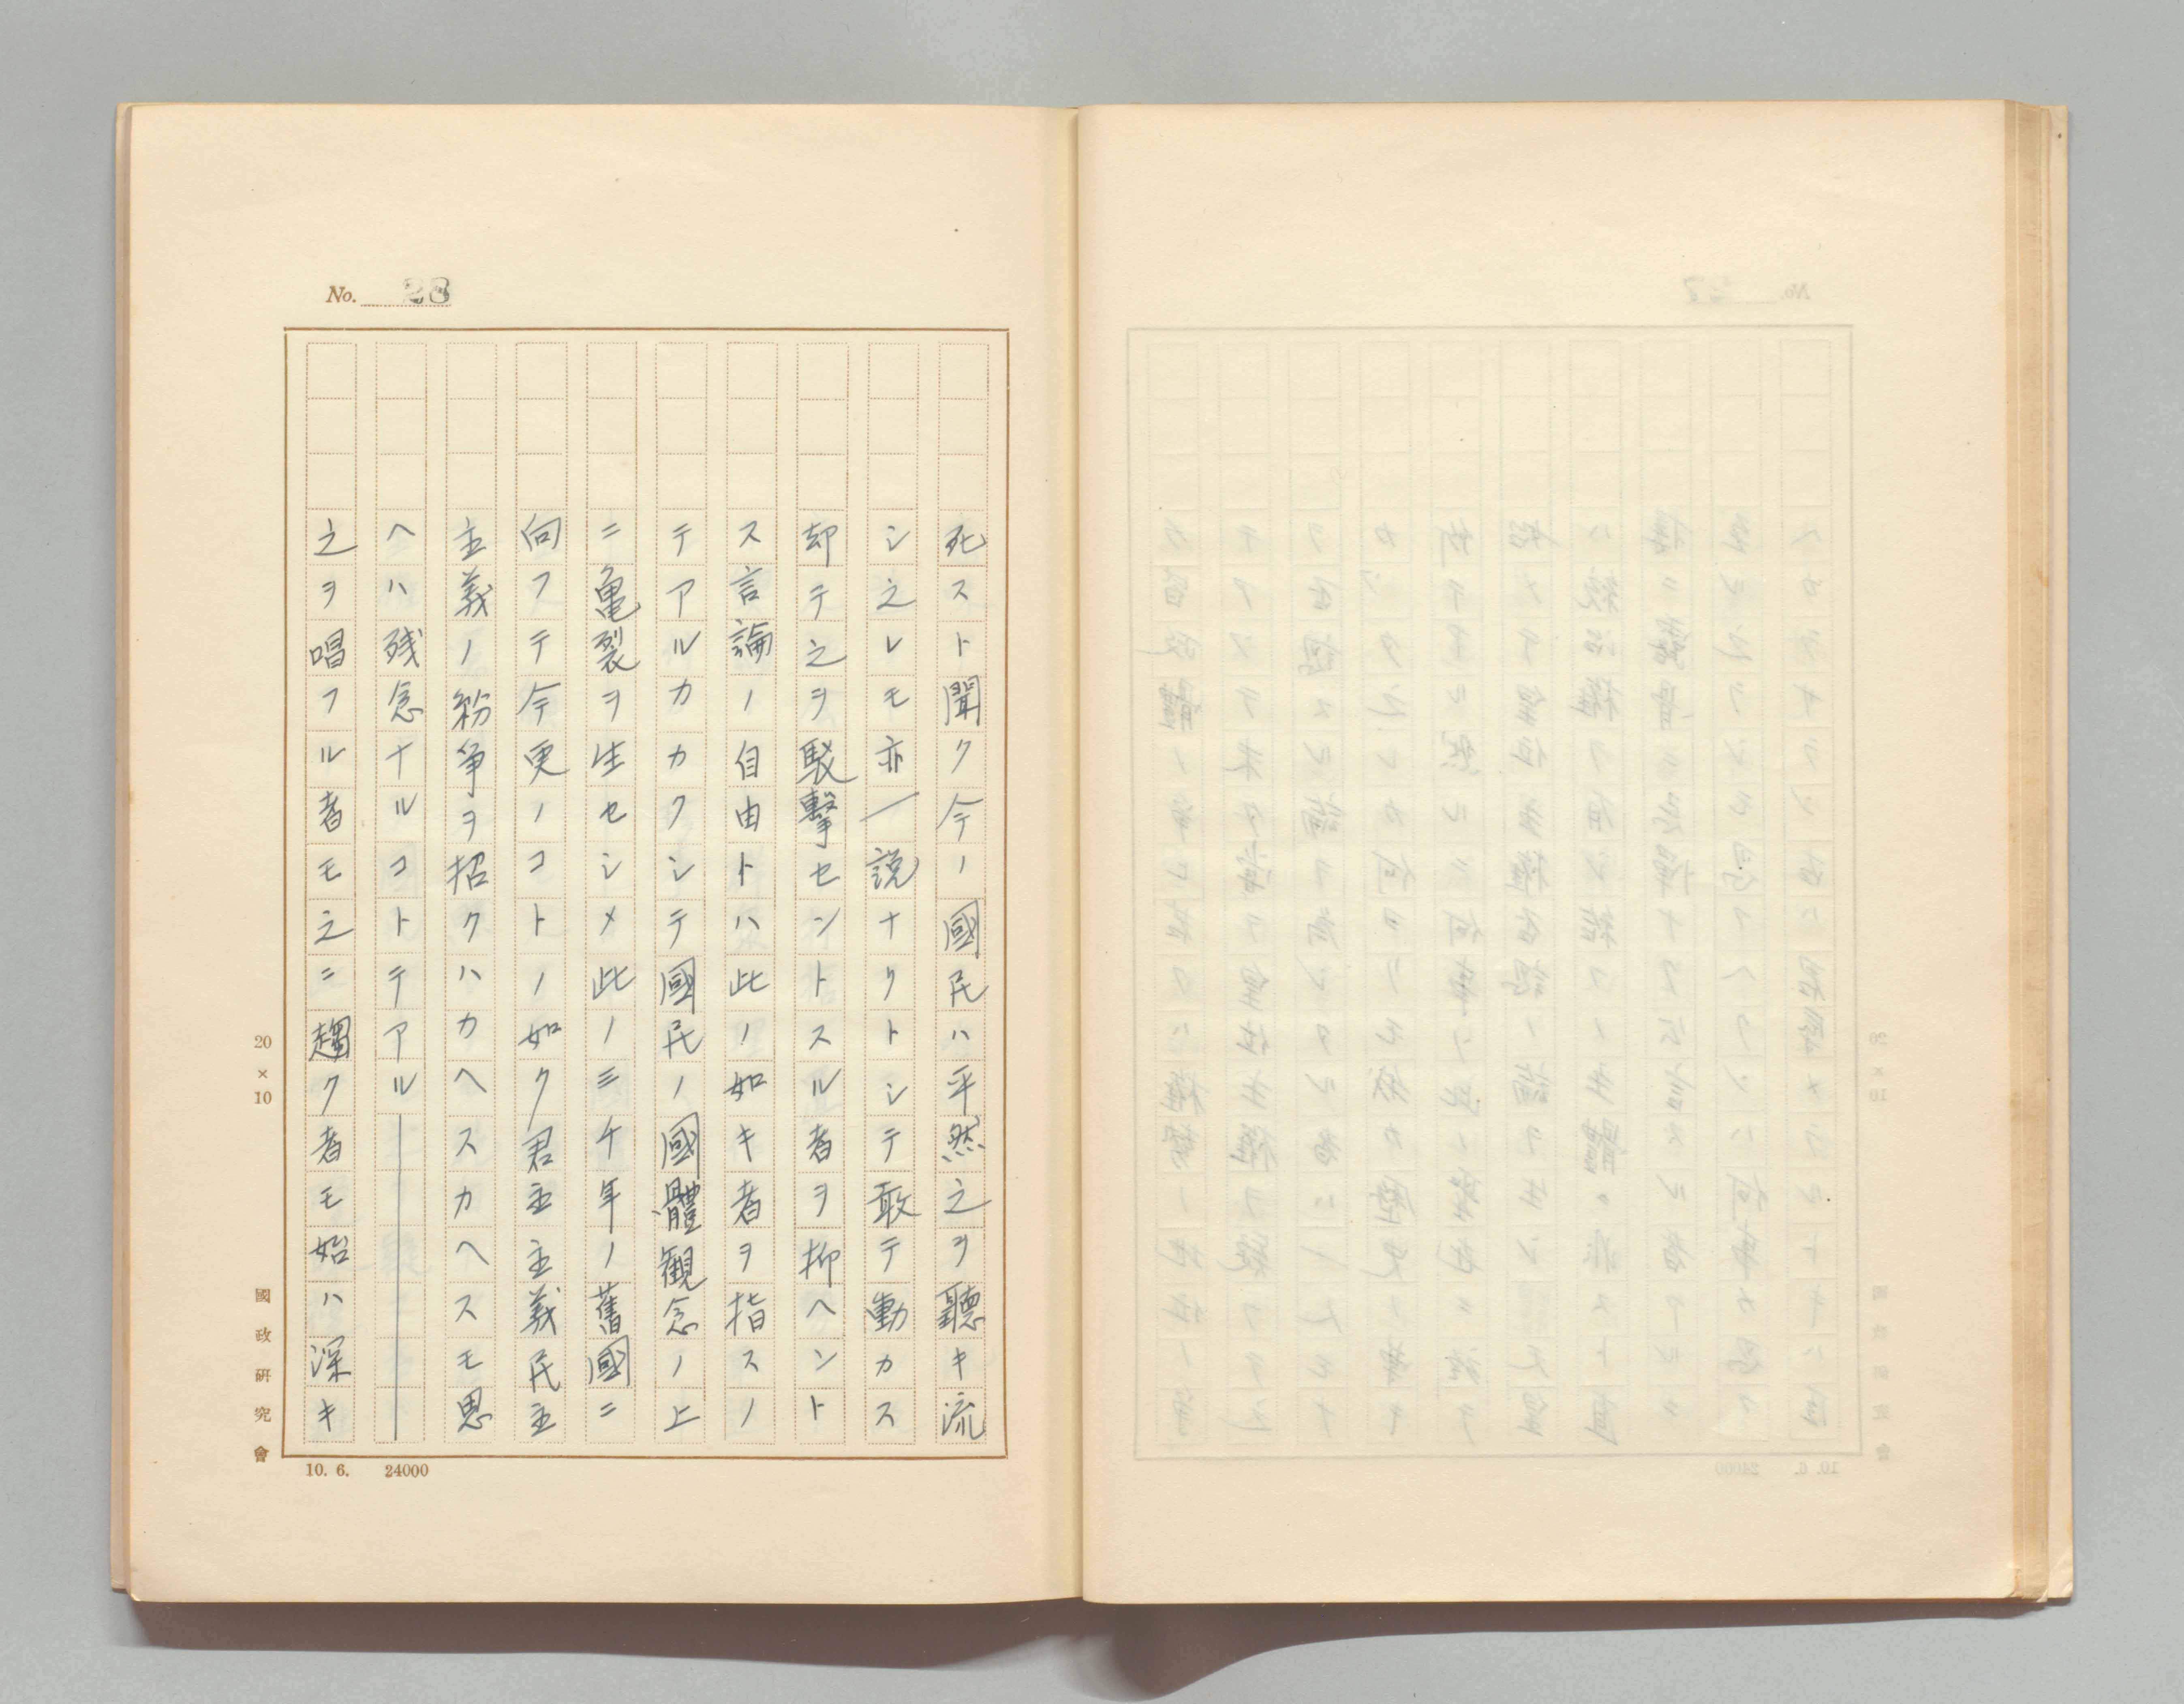 No. 28
死スト聞ク今ノ國民ハ平然之ヲ聽キ流
シ之レモ亦一説ナリトシテ敢テ動カス
却テ之ヲ駁擊セントスル者ヲ抑ヘント
ス言論ノ自由トハ此ノ如キ者ヲ指スノ
テアルカカクシテ國民ノ國體観念ノ上
ニ亀裂ヲ生セシメ此ノ三千年ノ舊國ニ
向フテ今更ノコトノ如ク君主主義民主
主義ノ紛争ヲ招クハカヘスカヘスモ思
ヘハ残念ナルコトテアル――――――
之ヲ唱フル者モ之ニ趨ク者モ始ハ深キ
20×10
國政研究會
10. 6. 24000